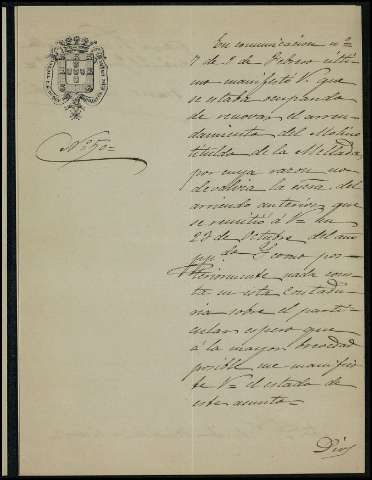 Nº 50=
En comunicacion nº
7 de 9 de Febrero últi-
mo manifestó V. que
se estaba ocupando
de renovar el arren-
damiento del Molino
titulado de la Mellada
por cuya razon no
devolvia la del
arriendo anterior que
se remitió á V= en
23 de Octubre del año
ppdo. Y como pos-
teriormente nada cons-
ta en esta Contadu-
ria sobre el parti-
cular, espero que
á la mayor brevedad
posible me manifies-
te V= el estado de
este asunto=
Dios